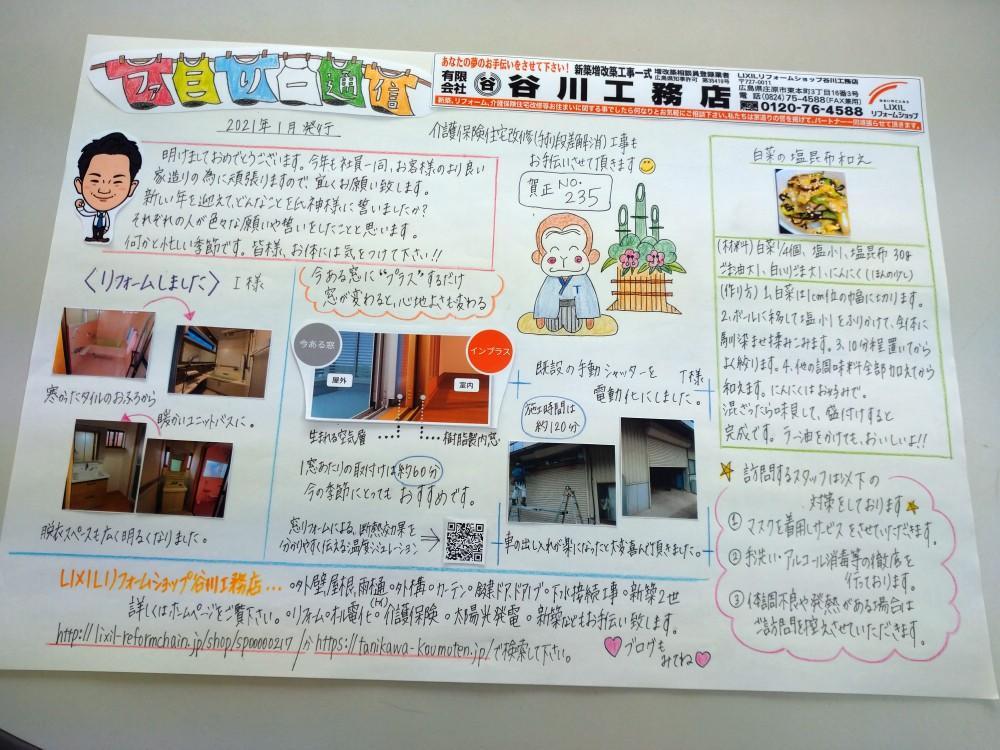 ファミリー通信
あなたの夢のお手伝いをさせて下さい!
新築増改築工事一式
増改築相談員登録業者
有限会社 谷川工務店
LIXILリフォームショップ谷川工務店
〒727-0011
広島県庄原市東本町3丁目16番3号
電話(0824)75-4588(FAX兼用)
0120-76-4588
LIXIL
リフォームショップ
新築、リフォーム、介護保険住宅改修等お住まいに関する事でしたら何なりとお気軽にご相談下さい。私たちは家造りの誇を掲げて、パートナー一同頑張らせて頂きます。
2021年1月発行
介護保険住宅改修(手すり・段差解消)工事も
お手伝いさせて頂きます
明けましておめでとうございます。今年も社員一同、お客様のより良い
家造りの為に頑張りますので宜くお願い致します。
新しい年を迎えて、どんなことを氏神様に誓いましたか?
それぞれの人が色々な願いや誓いをしたことと思います。
何かと忙しい季節です。皆様、お体には気をつけて下さい。
賀正 NO.
235
白菜の塩昆布和え
(材料) 白菜1/4個、塩小1、塩昆布30g
ごま油大1、白いりごま大1、にんにく(1ほんの少し)
(作り方) 1.白菜は1cm位の幅に切ります。
2.ボールに移して塩小1をふりかけて、全体に
馴染ませ揉みこみます。3.10分程置いてから
よく絞ります。4.他の調味料全部加えてから
和えます。にんにくはお好みで。
混ざったら味見して、盛付けすると
完成です。ラー油をかけても、おいしいよ!!
〈リフォームしました〉 I様
寒かったタイルのおふろから
暖かいユニットバスに。
脱衣スペースも広く明るくなりました。
今ある窓に"プラス"するだけ
窓が変わると、心地よさも変わる
今ある窓
インプラス
屋外
室内
生まれる空気層
樹脂製内窓
1窓あたりの取付けは約60分
今の季節にとってもおすすめです。
窓リフォームによる、断熱効果を
分かりやすく伝える温度シミュレーション
既設の手動シャッターを T様
電動化にしました。
施工時間は
約120分
車の出し入れが楽になったと大変喜んで頂きました。
訪問するスタッフは以下の
対策をしております
① マスクを着用しサービスをさせていただきます。
② 手洗い・アルコール消毒等の徹底を
行っております。
③ 体調不良や発熱がある場合は
ご訪問を控えさせていただきます。
LIXILリフォームショップ谷川工務店...
○外壁屋根、雨樋○外構○カーテン○鍵○ドア○ドアノブ○下水接続工事○新築2世
詳しくはホームページをご覧下さい。○リフォーム○オール電化(IH)○介護保険○太陽光発電○新築などもお手伝い致します。
http://lixil-reformchain.jp/shop/sp00000217/か https://tanikawa-koumoten.jp/で検索して下さい。
ブログも
みてね